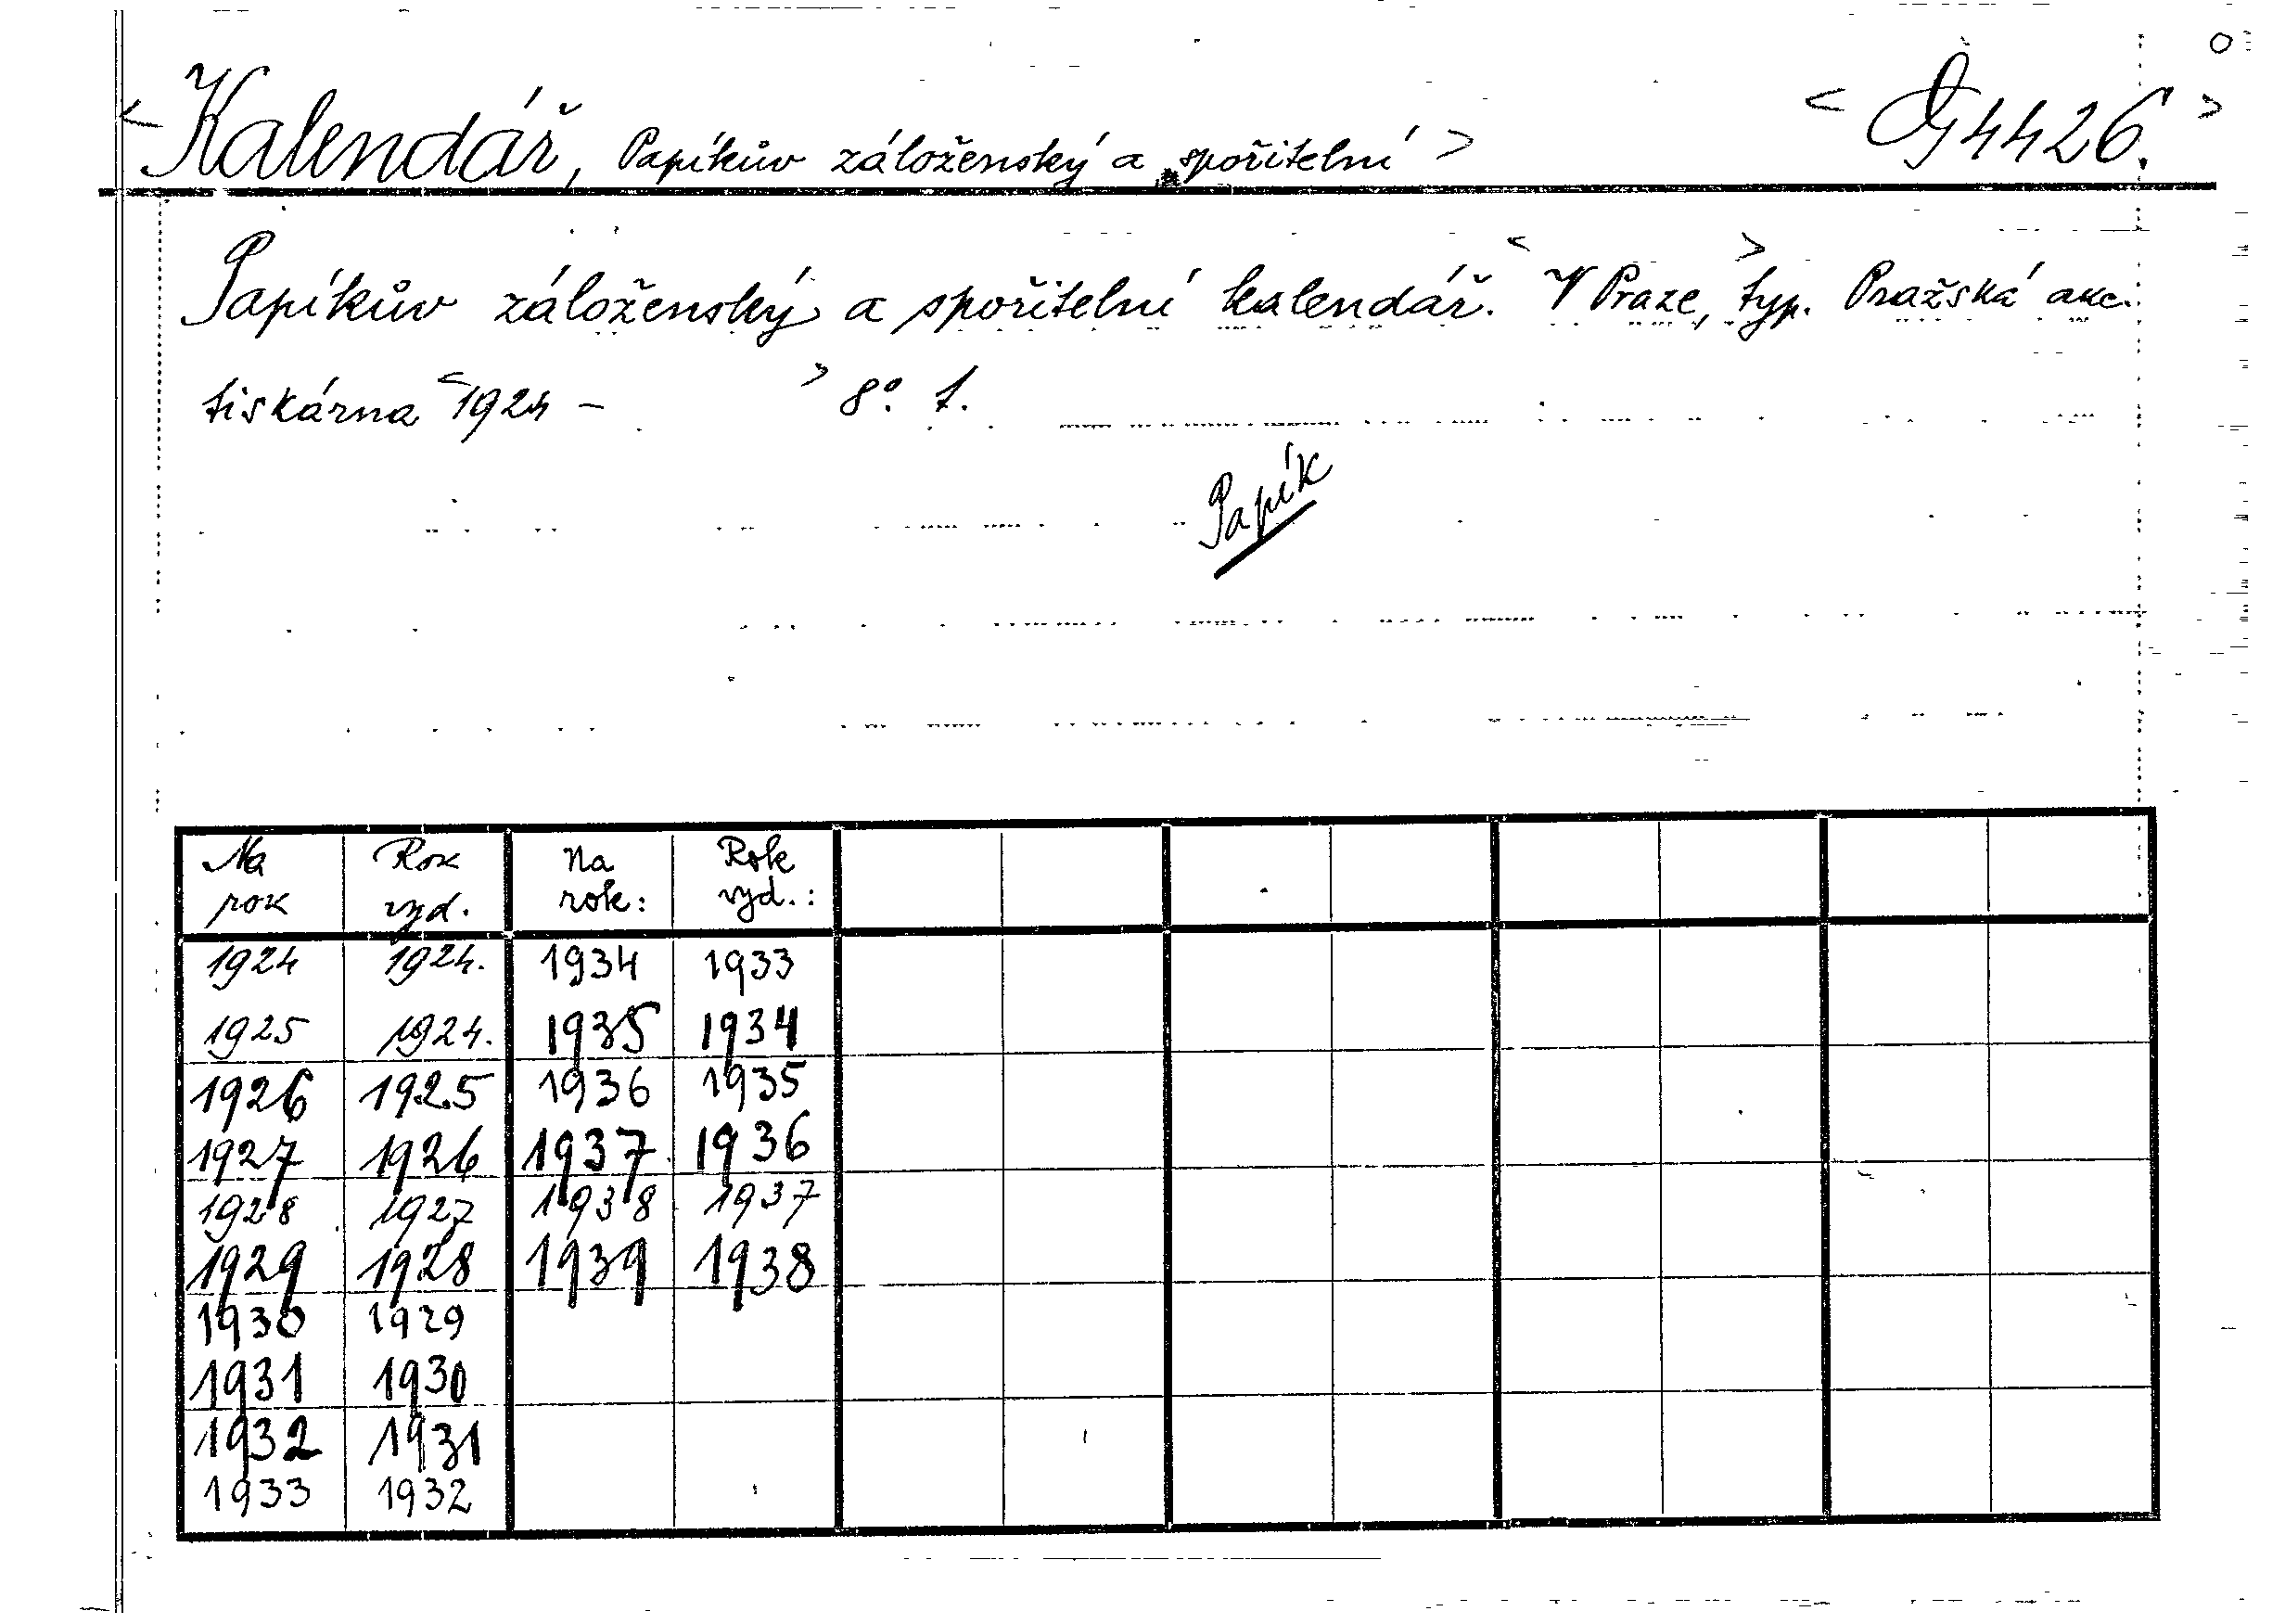 <Kalendář, Papíkův záloženský a spořitelní> <G 4426.>
Papíkův záloženský a spořitelní kalendář. <V Praze,> typ. Pražská akc.
tiskárna <1924 – > 8°. t.
Papík
Na rok Rok vyd. Na rok: Rok vyd.:
1924 1924. 1934 1933
1925 1924. 1935 1934
1926 1925 1936 1935
1927 1926 1937 1936
1928 1927 1938 1937
1929 1928 1939 1938
1930 1929
1931 1930
1932 1931
1933 1932